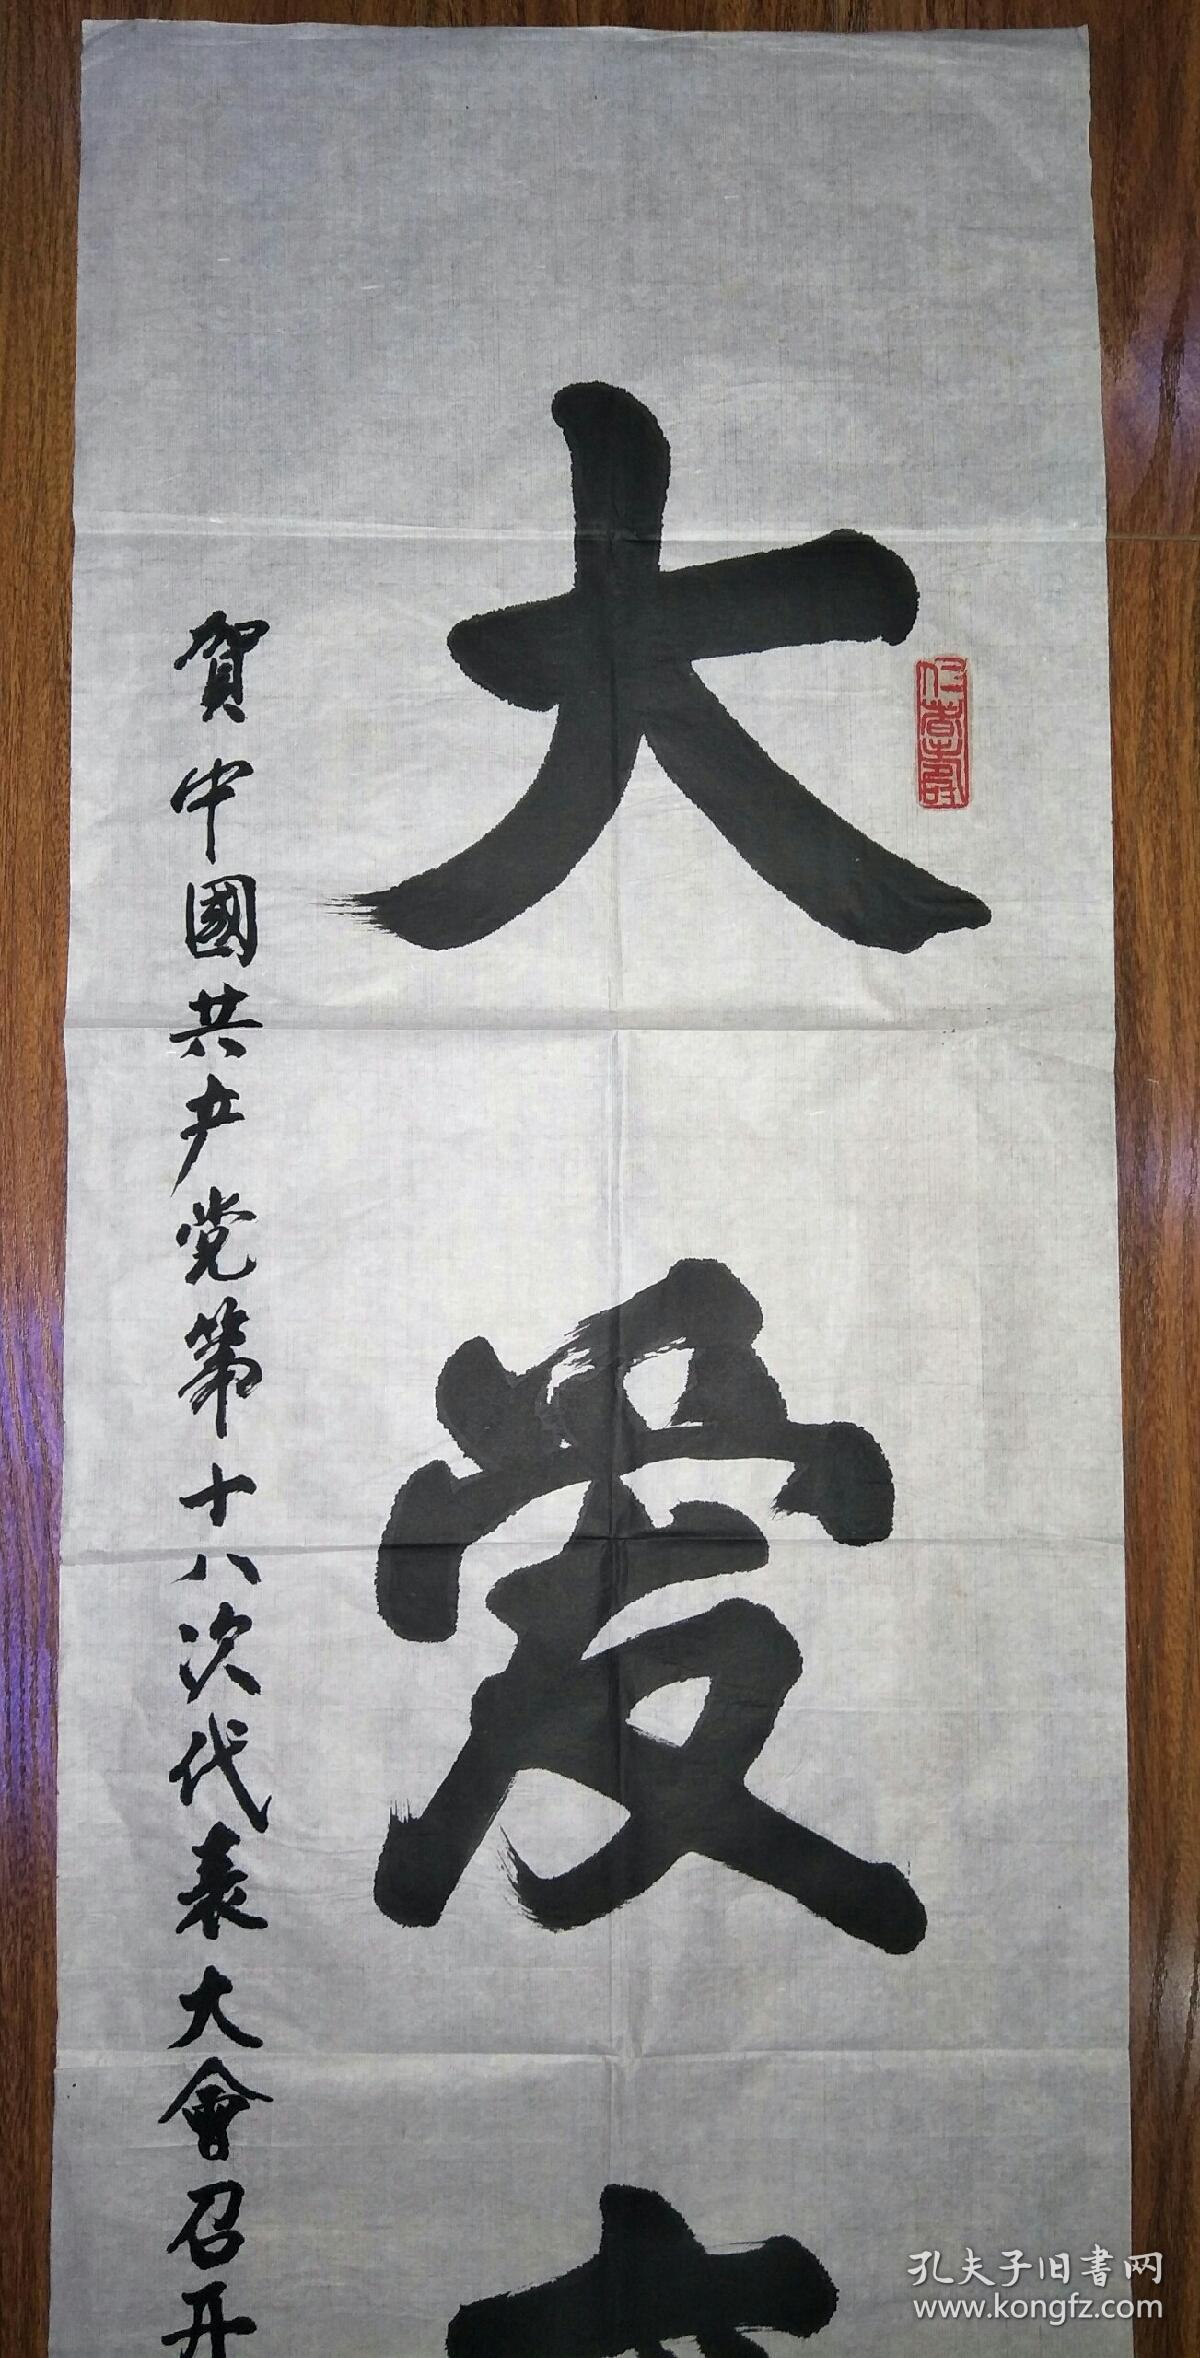 大爱
賀中國共产党第十八次代表大會召开
仁者壽
孔夫子旧書网
www.kongfz.com